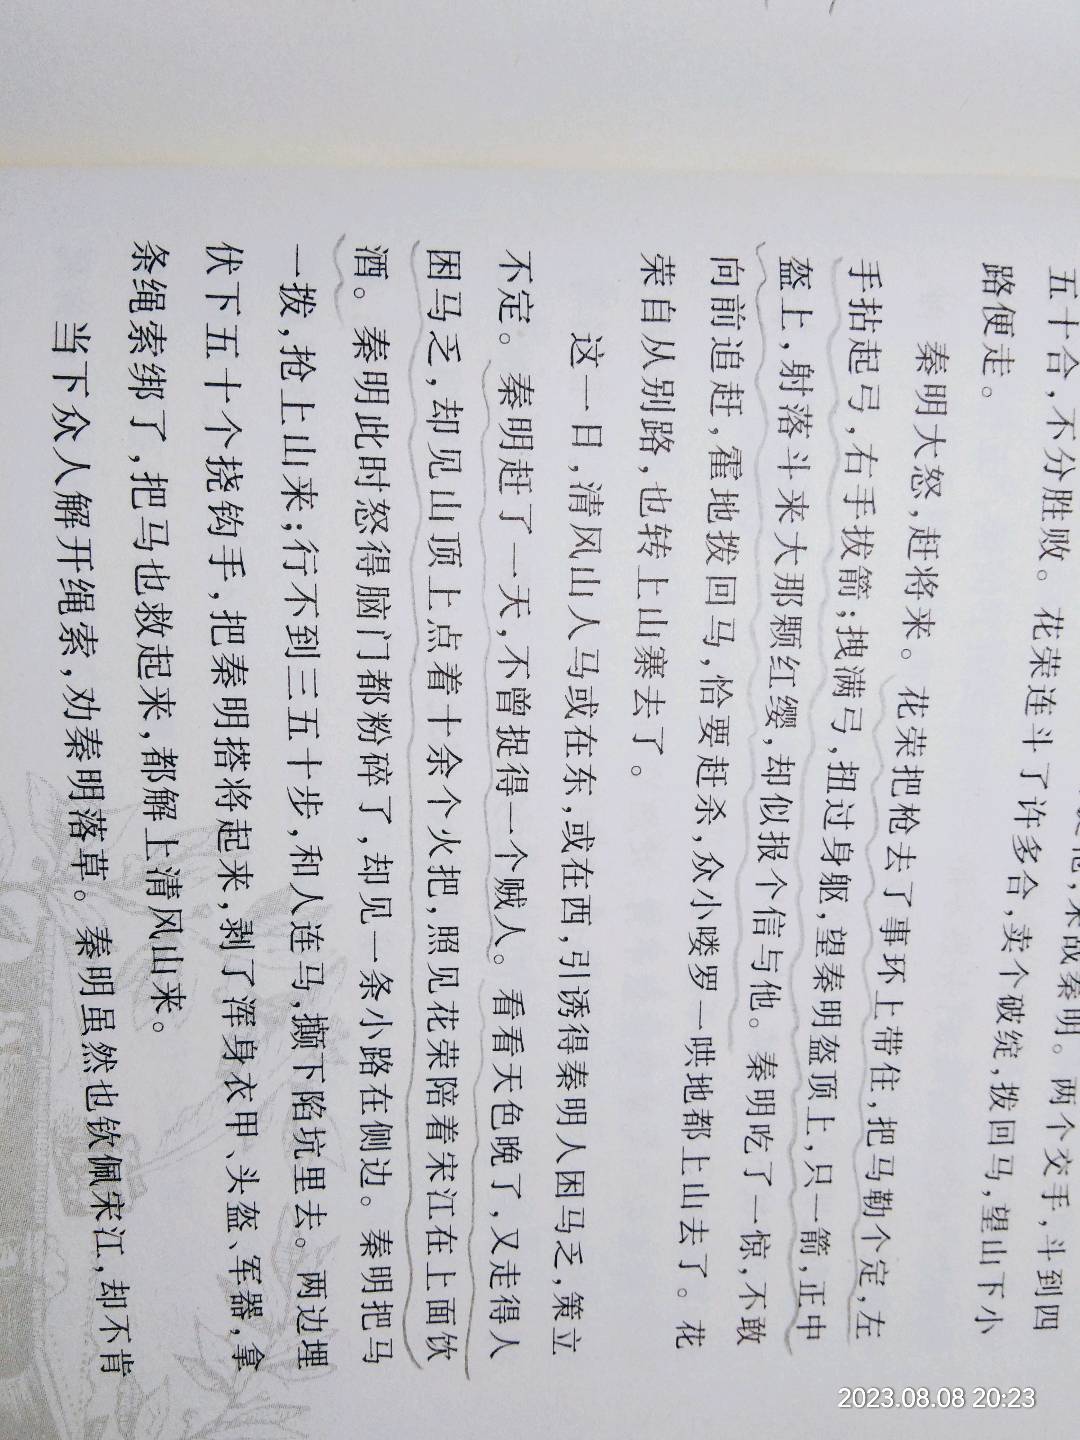 来战秦明。两个交手，斗到四
五十合，不分胜败。花荣连斗了许多合，卖个破绽，拨回马，望山下小
路便走。
秦明大怒，赶将来。花荣把枪去了事环上带住，把马勒个定，左
手拈起弓，右手拔箭；拽满弓，扭过身躯，望秦明盔顶上，只一箭，正中
盔上，射落斗来大那颗红缨，却似报个信与他。秦明吃了一惊，不敢
向前追赶，霍地拨回马，恰要赶杀，众小喽罗一哄地都上山去了。花
荣自从别路，也转上山寨去了。
这一日，清风山人马或在东，或在西，引诱得秦明人困马乏，策立
不定。秦明赶了一天，不曾捉得一个贼人。看看天色晚了，又走得人
困马乏，却见山顶上点着十余个火把，照见花荣陪着宋江在上面饮
酒。秦明此时怒得脑门都粉碎了，却见一条小路在侧边。秦明把马
一拨，抢上山来；行不到三五十步，和人连马，攧下陷坑里去。两边埋
伏下五十个挠钩手，把秦明搭将起来，剥了浑身衣甲、头盔、军器，拿
条绳索绑了，把马也救起来，都解上清风山来。
当下众人解开绳索，劝秦明落草。秦明虽然也钦佩宋江，却不肯
2023.08.08 20:23